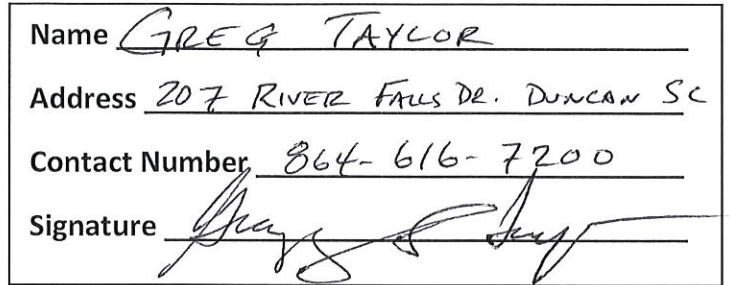 Name GREG TAYLOR
Address 207 RIVER FALLS DR. DUNCAN SC
Contact Number 864-616-7200
Signature